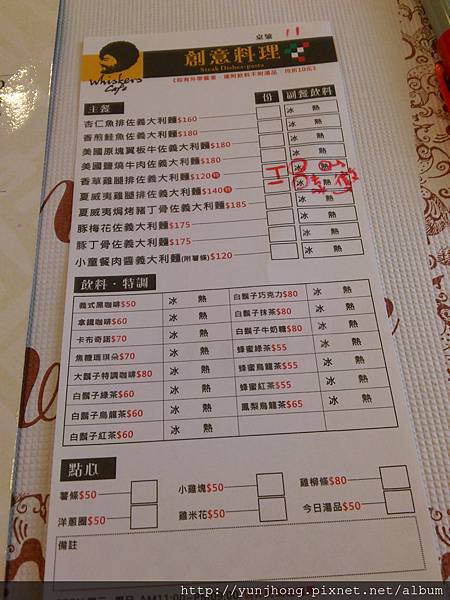 桌號 11
Whiskers Cafe
創意料理
Steak Dishes+pasta
主餐 份 副餐飲料
杏仁魚排佐義大利麵$160 冰 熱
香煎鮭魚佐義大利麵$180 冰 熱
美國原塊翼板牛佐義大利麵$180 冰 熱
美國鹽燒牛肉佐義大利麵$180 冰 熱
香草雞腿排佐義大利麵$120 冰 熱
夏威夷雞腿排佐義大利麵$140 冰 熱
夏威夷焗烤豬丁骨佐義大利麵$185 冰 熱
豚梅花佐義大利麵$175 冰 熱
豚丁骨佐義大利麵$175 冰 熱
小童餐肉醬義大利麵(附薯條)$120 冰 熱
飲料・特調
義式黑咖啡$50 冰 熱 白鬍子巧克力$80 冰 熱
拿鐵咖啡$60 冰 熱 白鬍子抹茶$80 冰 熱
卡布奇諾$70 冰 熱 白鬍子牛奶糖$80 冰 熱
焦糖瑪琪朵$70 冰 熱 蜂蜜綠茶$55 冰 熱
大鬍子特調咖啡$80 冰 熱 蜂蜜烏龍茶$55 冰 熱
白鬍子綠茶$60 冰 熱 蜂蜜紅茶$55 冰 熱
白鬍子烏龍茶$60 冰 熱 鳳梨烏龍茶$65 冰 熱
白鬍子紅茶$60 冰 熱
點心
薯條$50 小雞塊$50 雞柳條$80
洋蔥圈$50 雞米花$50 今日湯品$50
備註
http://yunjhong.pixnet.net/album